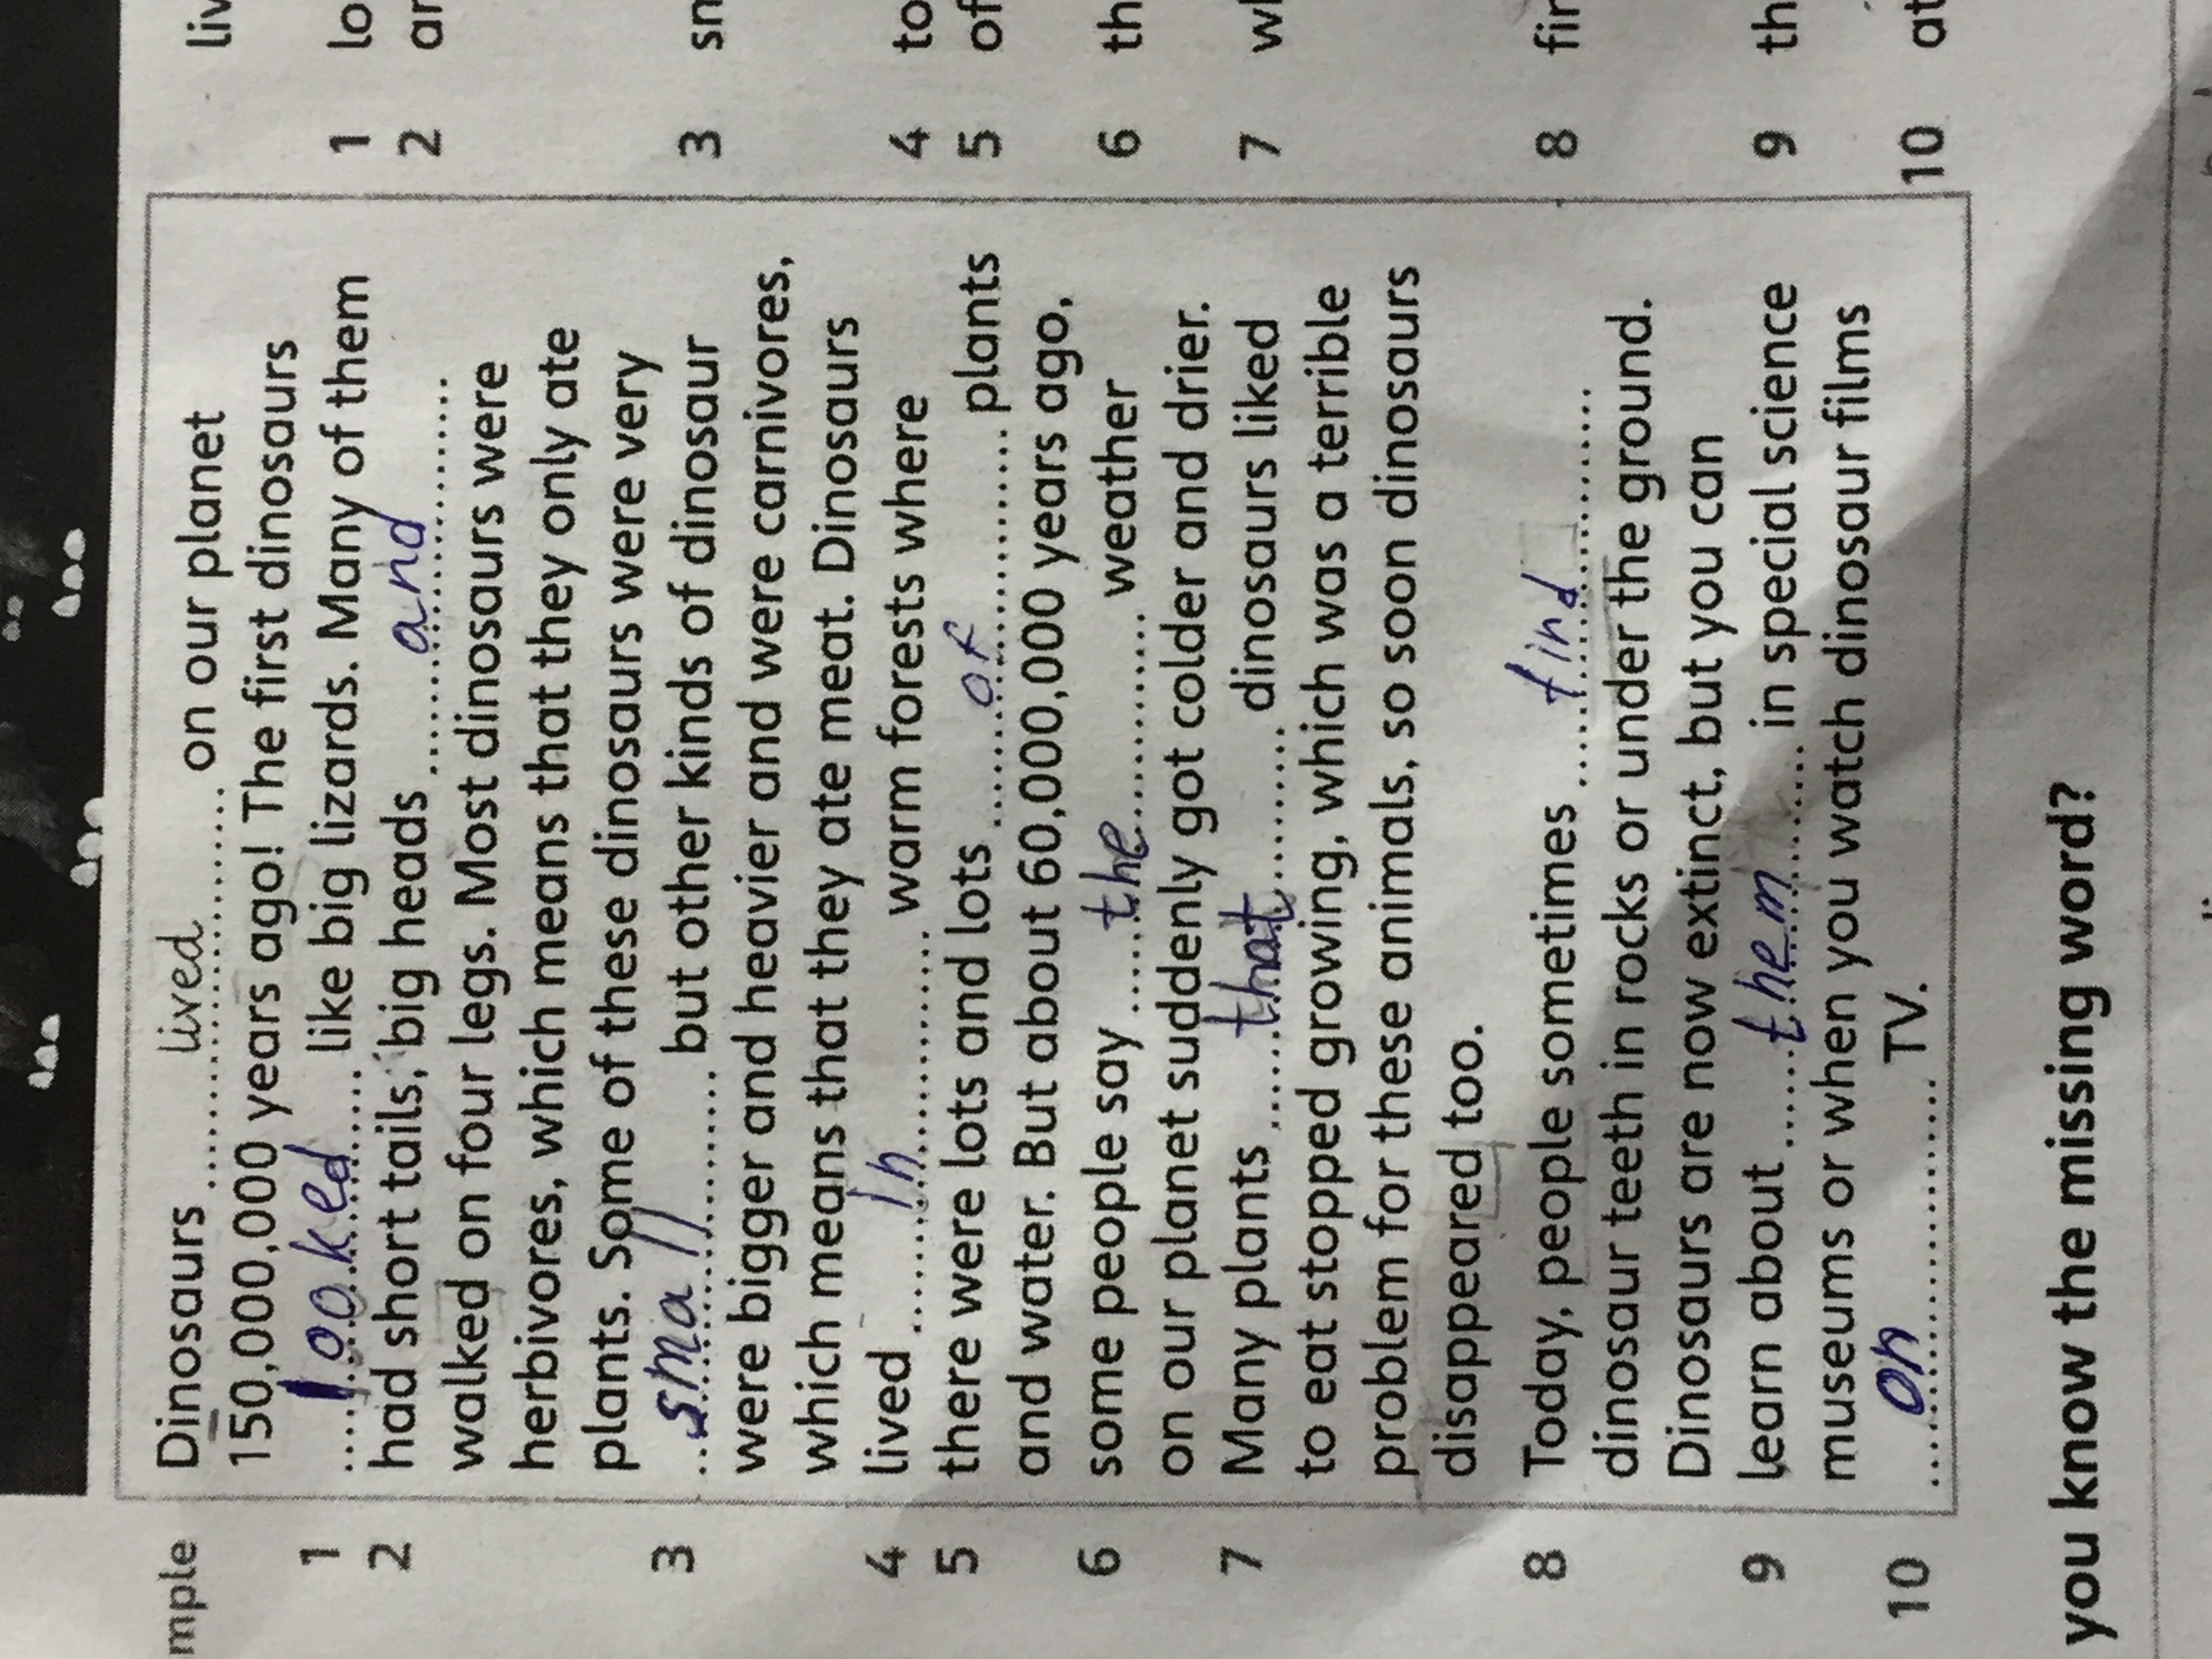 mple Dinosaurs ..........lived.......... on our planet liv
150,000,000 years ago! The first dinosaurs
1 .....looked..... like big lizards. Many of them 1 lo
2 had short tails, big heads ..........and.......... 2 an
walked on four legs. Most dinosaurs were
herbivores, which means that they only ate
plants. Some of these dinosaurs were very
3 ..small.......... but other kinds of dinosaur 3 sn
were bigger and heavier and were carnivores,
which means that they ate meat. Dinosaurs
4 lived ..........in.......... warm forests where 4 to
5 there were lots and lots ..........of.......... plants 5 of
and water. But about 60,000,000 years ago,
6 some people say ......the.......... weather 6 th
on our planet suddenly got colder and drier.
7 Many plants ......that.......... dinosaurs liked 7 wh
to eat stopped growing, which was a terrible
problem for these animals, so soon dinosaurs
disappeared too.
8 Today, people sometimes ......find.......... 8 fin
dinosaur teeth in rocks or under the ground.
Dinosaurs are now extinct, but you can
9 learn about ......them...... in special science 9 th
museums or when you watch dinosaur films
10 ......on.......... TV. 10 at
you know the missing word?